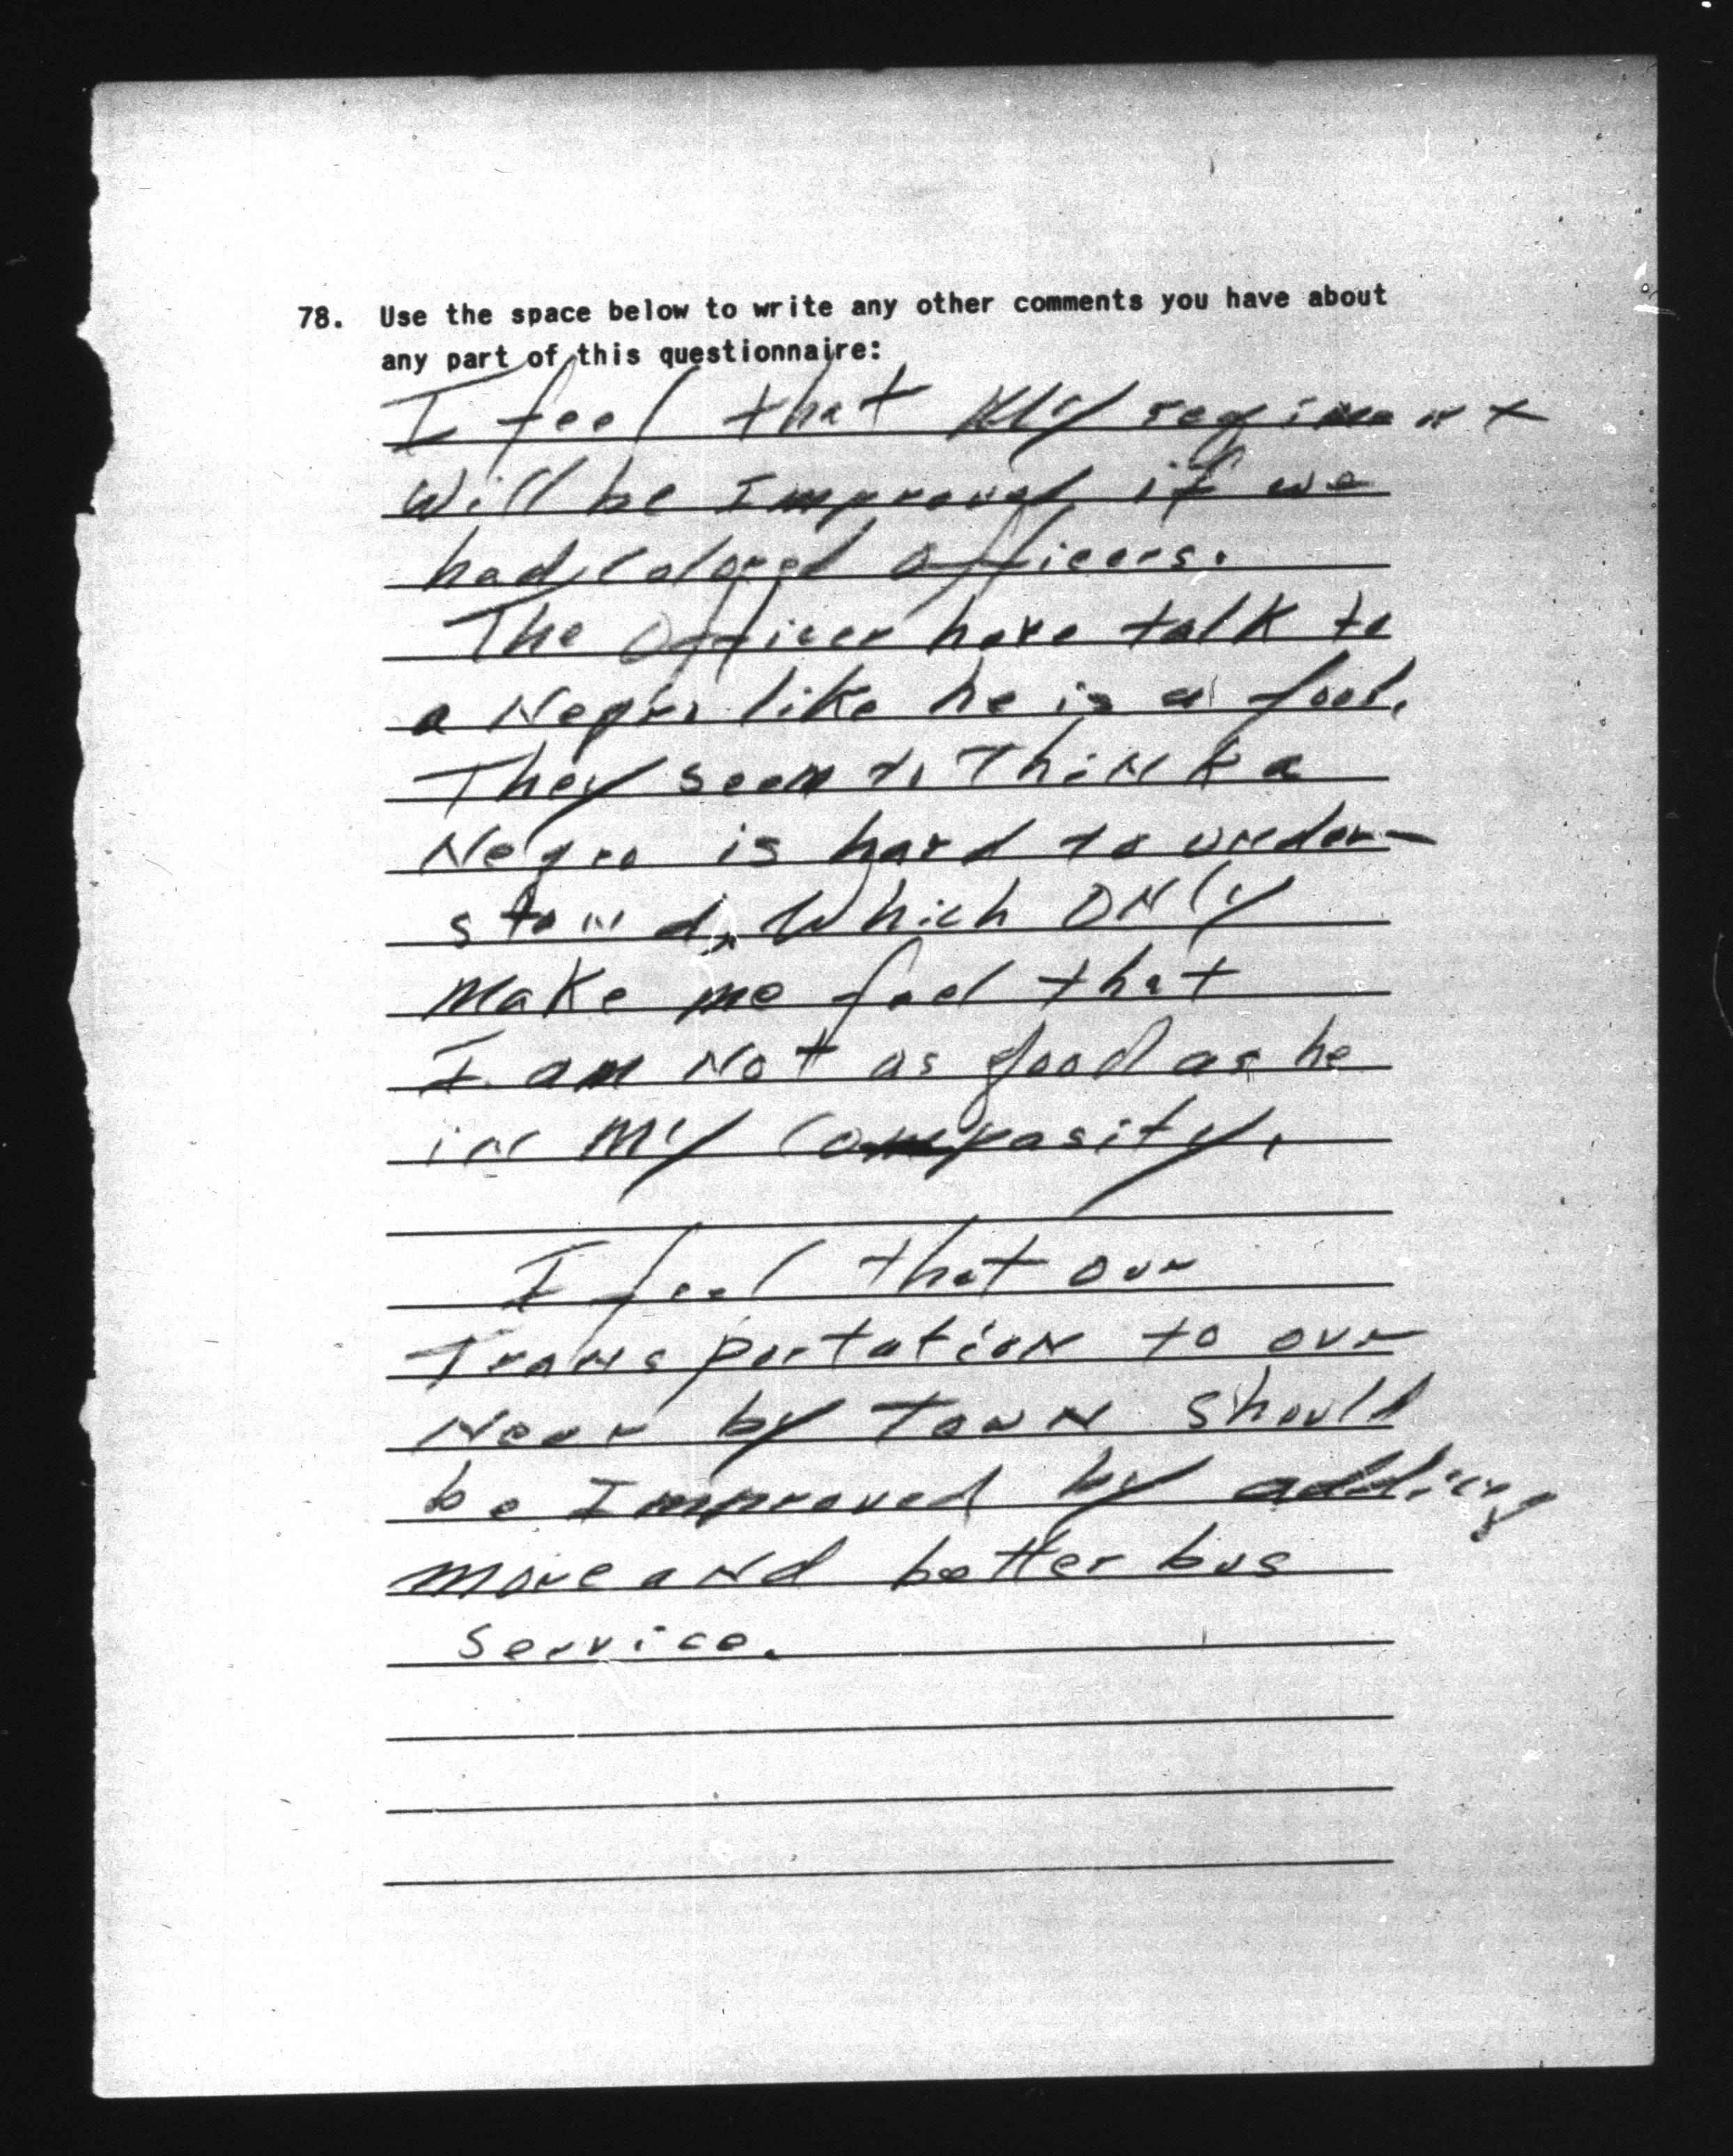 78. Use the space below to write any other comments you have about
any part of this questionnaire:
I feel that My regiment
will be Improved if we
had colored officers.
The Officer here talk to
a Negro like he is a fool.
They seem to Think a
Negro is hard to under-
stand, Which ONly
make me feel that
I am Not as good as he
in My compasity.
I feel that our
Transportation to our
Near by Town should
be Improved by adding
more and better bus
service.